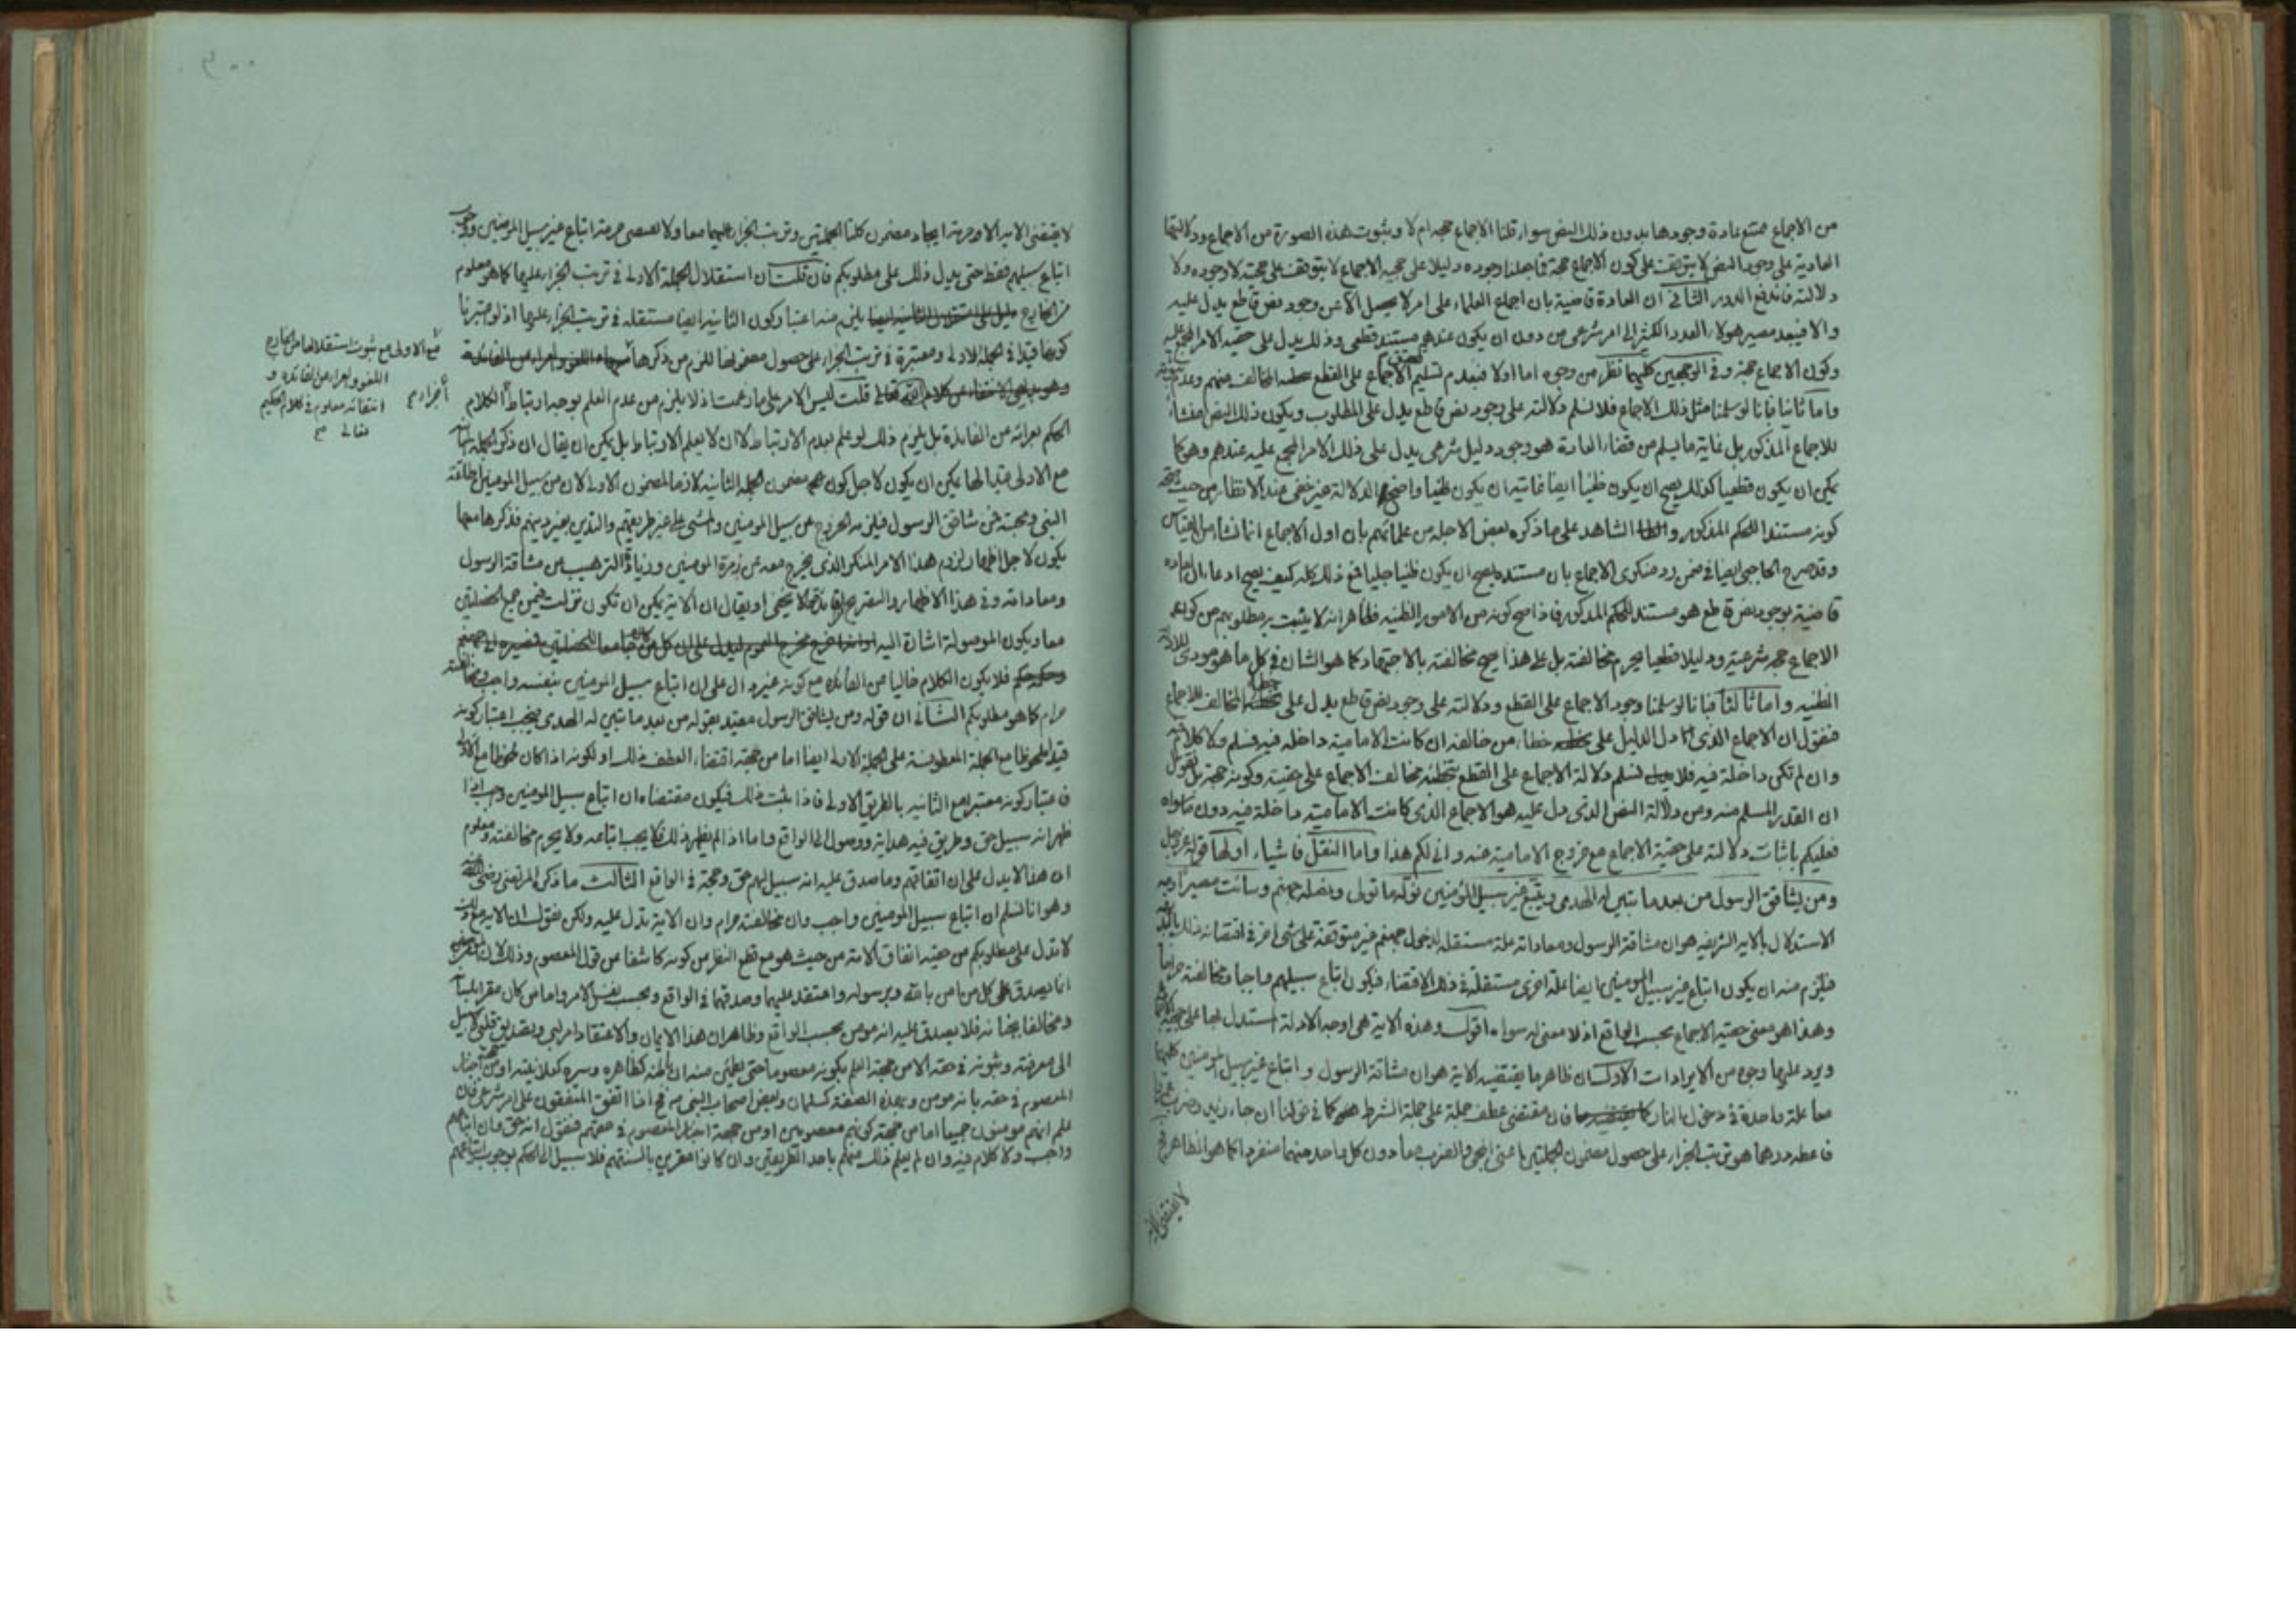 من الاجماع ممتنع عادة وجودها بدون ذلك النص سواء قلنا الاجماع حجة ام لا وثبوت هذه الصورة من الاجماع ودلالتها
العادية على وجود النص لا يتوقف على كون الاجماع حجة فما جعلنا وجوده دليلا على حجية الاجماع لا يتوقف على حجيته لا وجوده ولا
دلالته فاندفع الدور الثانى ان العادة قاضية بان اجماع العلماء على امر لا يحصل الا عن وجود نص قاطع يدل عليه
والا فيبعد مصير هولاء العدد الكثير الى امر شرعى من دون ان يكون عندهم مستند قطعى وذلك يدل على حقية الامر المجمع عليه
وكون الاجماع حجة وفى الوجهين كليهما نظر من وجوه اما اولا فبعدم تسليم الاجماع على القطع المخالف منهم وعدم
واما ثانيا فبانا لو سلمنا مثل ذلك الاجماع فلا نسلم دلالته على وجود نص قاطع يدل على المطلوب ويكون ذلك النص منشأ
للاجماع المذكور بل غاية ما يسلم من قضاء العادة هو وجود دليل شرعى يدل على ذلك الامر المجمع عليه عندهم وهو كما
يمكن ان يكون قطعيا كذلك يصح ان يكون ظنيا ايضا غايته ان يكون ظنيا واضح الدلالة غير خفى عند الانظار من حيث
كونه مستندا للحكم المذكور والشاهد على ما ذكره بعض الاجلة من علمائهم بان اول الاجماع انما نشاء من القياس
وقد صرح الحاجبى ايضا فى ضمن رد منكرى الاجماع بان مستنده يصح ان يكون ظنيا جليا فمع ذلك كله كيف يصح ادعاء ان العادة
قاضية بوجود نص قاطع هو مستند للحكم المذكور فاذا صح كونه من الامور الظنية فظاهر انه لا يثبت به مطلوبهم من كون
الاجماع حجة شرعية ودليلا قطعيا يحرم مخالفته بل على هذا يصح مخالفته بالاجتهاد كما هو الشان فى كل ما هو مودى
الظنية واما ثالثا فبانا لو سلمنا وجود الاجماع على القطع ودلالته على وجود نص قاطع يدل على المخالف للاجماع
فنقول ان الاجماع الذى دل الدليل على خطاء من خالفه ان كانت الامامية داخلة فيه فمسلم ولا كلام
وان لم تكن داخلة فيه فلا نسلم دلالة الاجماع على القطع بتخطئة مخالف الاجماع على حقيته وكونه حجة بل نقول
ان القدر المسلم منه ومن دلالة النص الذى دل عليه هو الاجماع الذى كانت الامامية داخلة فيه دون ما سواه
فعليكم باثبات دلالته على حقية الاجماع مع خروج الامامية منه وانى لكم هذا واما النقل فاشياء اولها قوله عز وجل
ومن يشاقق الرسول من بعد ما تبين له الهدى ويتبع غير سبيل المؤمنين نوله ما تولى ونصله جهنم وساءت مصيرا
الاستدلال بالاية الشريفة هو ان مشاقة الرسول ومعاداته علة مستقلة لدخول جهنم غير متوقفة على شى اخر فى اقتضائه ذلك
فيلزم منه ان يكون اتباع غير سبيل المومنين ايضا علة اخرى مستقلة فى ذلك الاقتضاء فيكون اتباع سبيلهم واجبا ومخالفته حراما
وهذا هو معنى حقية الاجماع بحسب الواقع اذ لا معنى له سواه اقول وهذه الاية هى اوجه الادلة استدل بها على حجية
ويرد عليها وجوه من الايرادات الاول ان ظاهر ما يقتضيه الاية هو ان مشاقة الرسول و اتباع غير سبيل المومنين كليهما
معا علة واحدة فى دخول النار فان مقتضى عطف جملة على جملة الشرط كما فى قولنا ان جاء زيد وضرب
هو ترتب الجزاء على حصول مضمون الجملتين اعنى المجى والضرب معا دون كل واحد منهما منفردا كما هو الظاهر
لا يقتضى الاية
لا يقتضى الاية الا حرمة ايجاد مضمون كلتا الجملتين وترتب الجزاء عليهما معا ولا يقتضى حرمة اتباع غير سبيل المومنين
اتباع سبيلهم فقط حتى يدل ذلك على مطلوبكم فان قلت ان استقلال الجملة الاولى فى ترتب الجزاء عليها كما هو معلوم
من الخارج يلزم منه اعتبار كون الثانية ايضا مستقلة فى ترتب الجزاء عليها اذ لو اعتبرنا
كونها قيدا فى الجملة الاولى ومعتبرة فى ترتب الجزاء على حصول مضمونها للزم من ذكرها
قلت ليس الامر على ما زعمت اذ لا يلزم من عدم العلم بوجه ارتباط الكلام
الحكم بعرائه عن الفائدة بل يلزم ذلك لو علم بعدم الارتباط لا ان لا يعلم الارتباط بل يمكن ان يقال ان ذكر الجملة
مع الاولى قيدا لها يمكن ان يكون لاجل كون مضمون الجملة الثانية لازما لمضمون الاولى لان من سبيل المومنين
النبى ومحبته فمن شاقق الرسول فيلزمه الخروج عن سبيل المومنين والمشى على غير طريقتهم والتدين بغير دينهم فذكرها معها
يكون لاجل اظهار لزوم هذا الامر المنكر الذى يخرج معه عن زمرة المومنين وزيادة الترهيب من مشاقة الرسول
ومعاداته وفى هذا الاظهار والتصريح فائدة كما لا يخفى او يقال ان الاية يمكن ان تكون نزلت فيمن جمع الخصلتين
معا ويكون الموصولة اشارة اليه
فلا يكون الكلام خاليا من الفائدة مع كونه غير دال على ان اتباع سبيل المومنين بنفسه واجب ومخالفته
حرام كما هو مطلوبكم الثانى ان قوله ومن يشاقق الرسول مقيد بقوله من بعد ما تبين له الهدى فيجب اعتبار كونه
قيدا ملحوظا مع الجملة المعطوفة على الجملة الاولى ايضا اما من جهة اقتضاء العطف ذلك او لكونه اذا كان ملحوظا مع الاولى
فاعتبار كونه معتبرا مع الثانية بالطريق الاولى فاذا ثبت ذلك فيكون مقتضاه ان اتباع سبيل المومنين وجب اذا
ظهر انه سبيل حق وطريق فيه هداية ووصول الى الواقع واما اذا لم يظهر ذلك فلا يجب اتباعه ولا يحرم مخالفته ومعلوم
ان هذا لا يدل على ان اتفاقهم وما صدق عليه انه سبيل لهم حق وحجة فى الواقع الثالث ما ذكره المرتضى رضى الله
وهو انا نسلم ان اتباع سبيل المومنين واجب وان مخالفته حرام وان الاية تدل عليه ولكن نقول ان الاية مع
لا تدل على مطلوبكم من حقية اتفاق الامة من حيث هو مع قطع النظر من كونه كاشفا من قول المعصوم وذلك لان
انما يصدق على كل من امن بالله وبرسوله واعتقد عليهما وصدقهما فى الواقع وبحسب نفس الامر واما من كان مقرا بلسانه
ومخالفا بجنانه فلا يصدق عليه انه مومن بحسب الواقع وظاهر ان هذا الايمان والاعتقاد امر قلبى وتصديق قلبى لا سبيل
الى معرفته وثبوته فى حقه الا من جهة العلم بكونه معصوما حتى يطمئن منه ان باطنه كظاهره وسره كعلانيته او من جهة اخبار
المعصوم فى حقه بانه مومن وبهذه الصفة كسلمان وبعض اصحاب النبى ص فح اذا اتفق المتفقون على امر شرعى فان
علم انهم مومنون جميعا اما من جهة كونهم معصومين او من جهة اخبار المعصوم فى حقهم فنقول انه حق وان اتباعهم
واجب ولا كلام فيه وان لم يعلم ذلك منهم باحد الطريقين وان كانوا مقرين بالسنتهم فلا سبيل الى الحكم بوجوب اتباعهم
مع الاولى مع ثبوت استقلالها من الخارج
اللغو والعراء من الفائدة و
انتفائه معلوم فى كلام الحكيم
تعالى صح